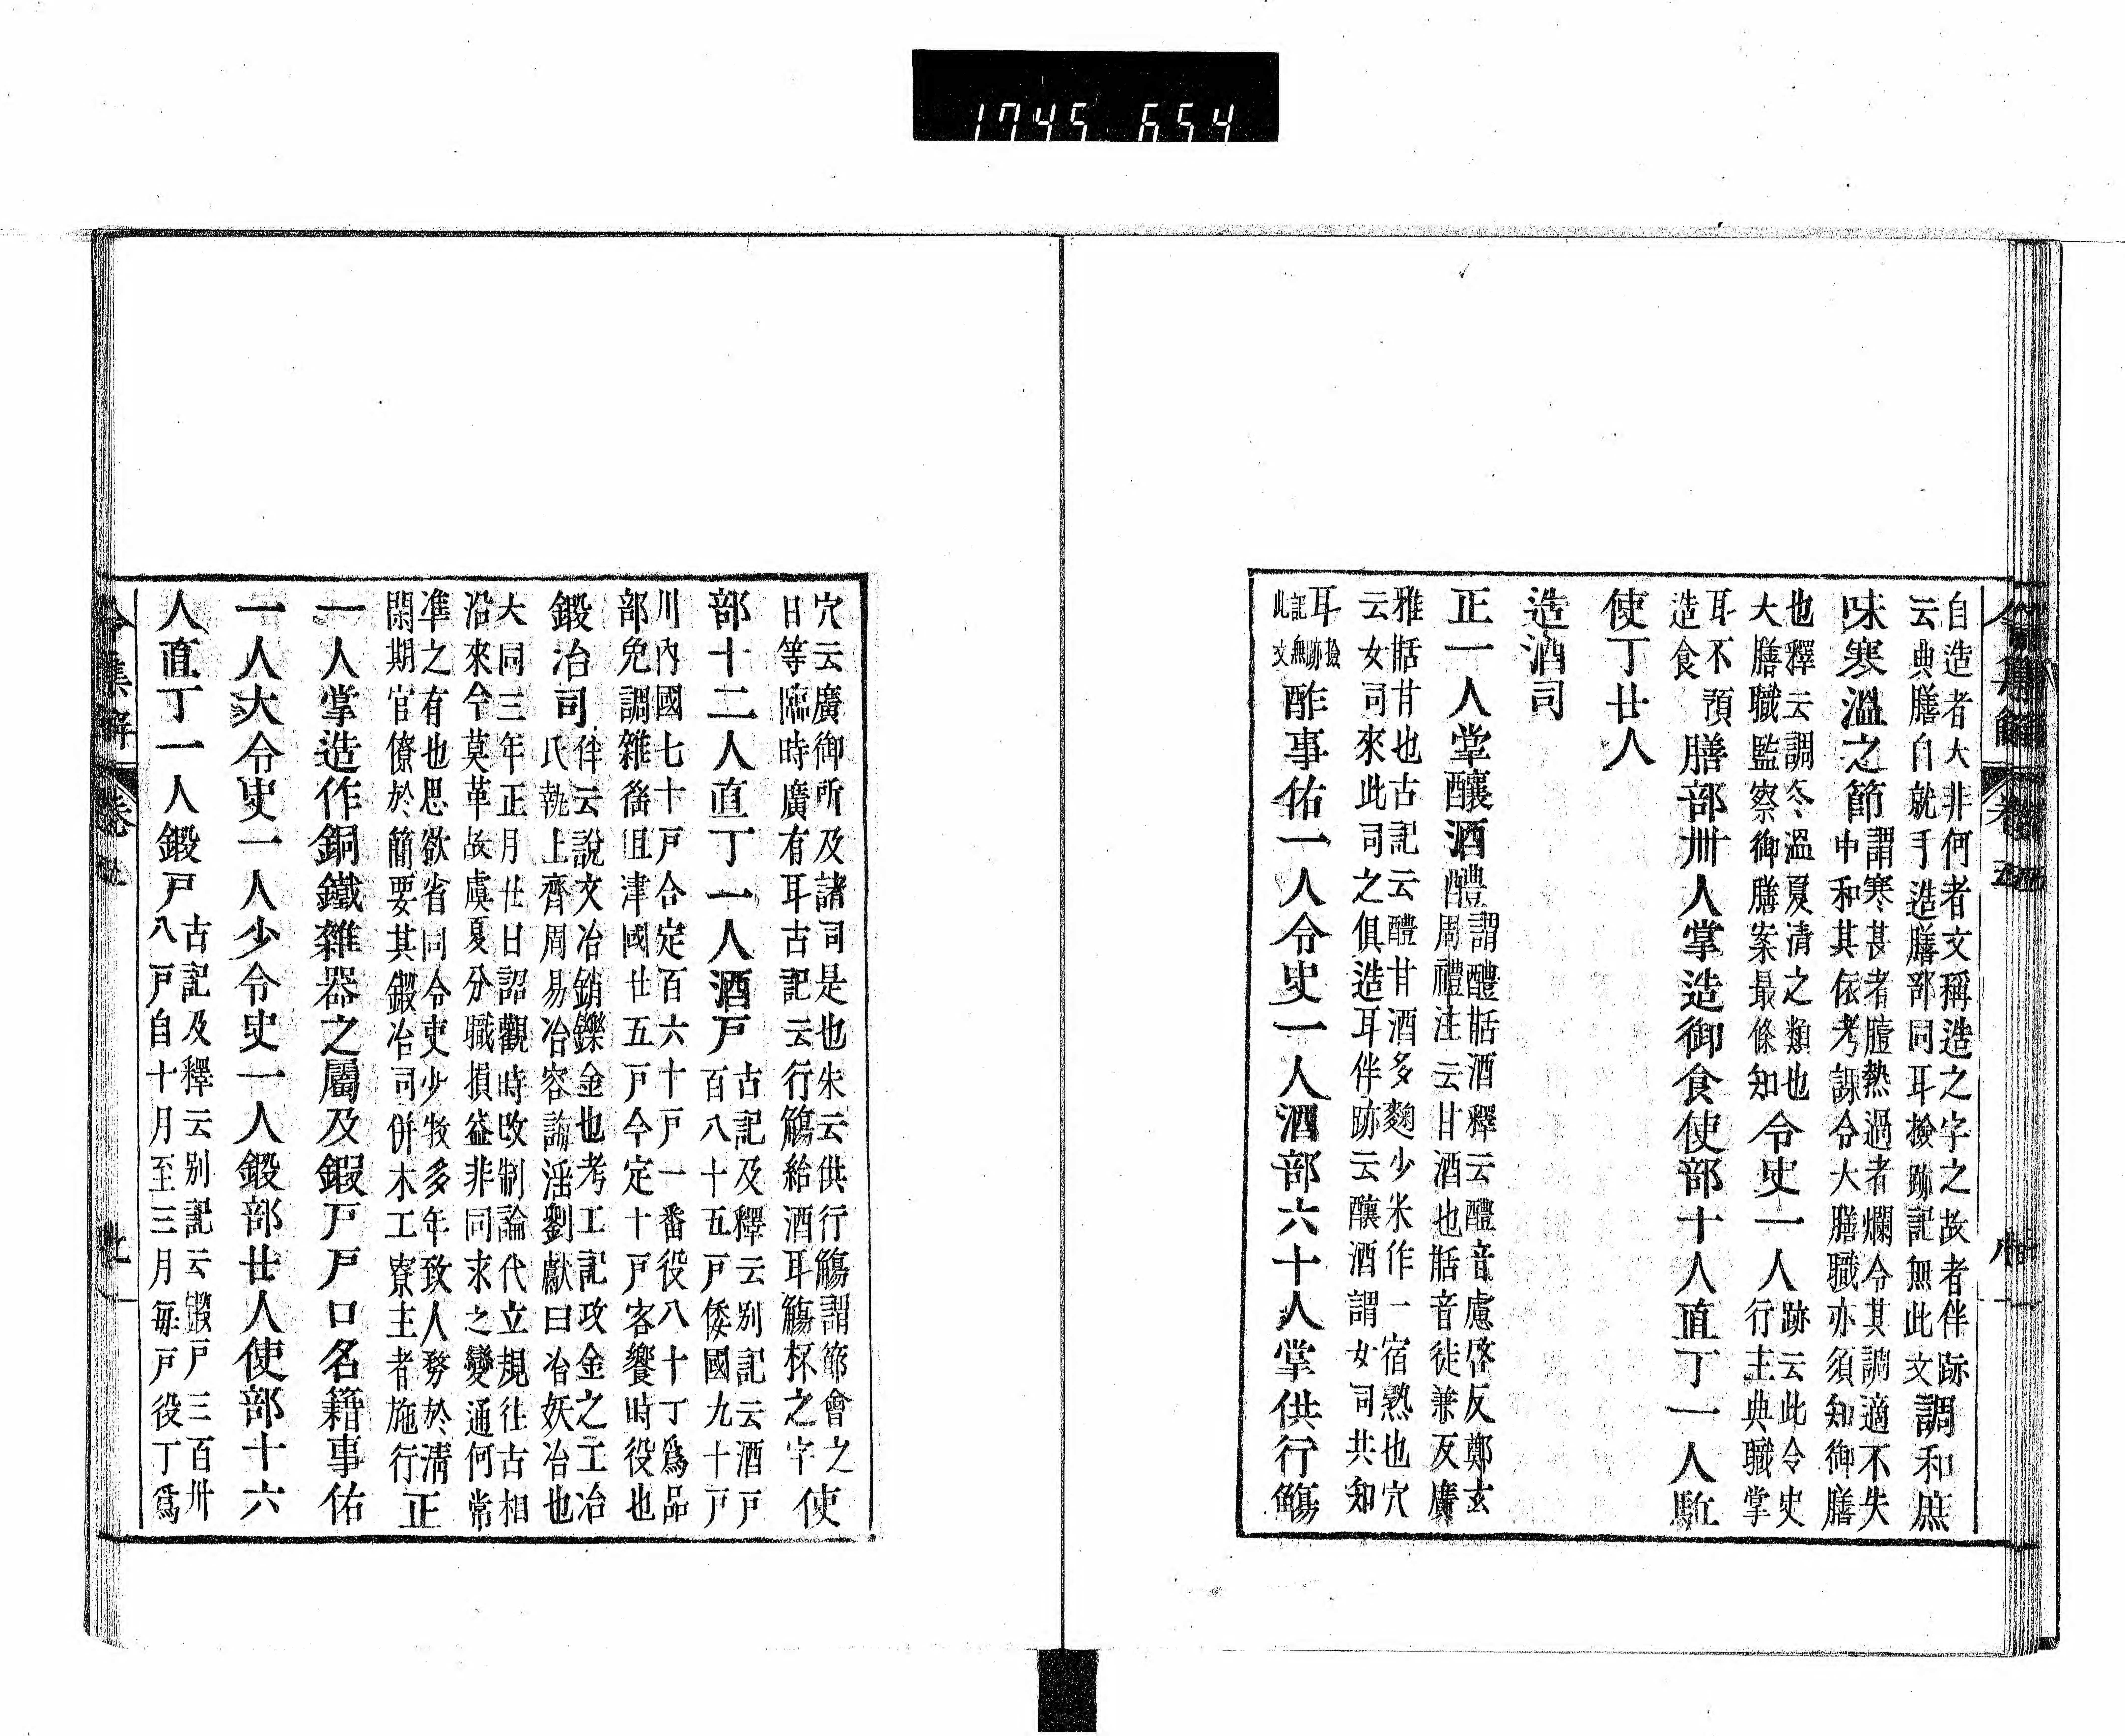 1745 654
自造者大非何者文稱造之字之故者伴跡
云典膳自就手造膳部同耳撿跡記無此文
調和庶
味寒溫之節
謂寒甚者膻熱過者爛令其調適不失
中和其依考課令大膳職亦須知御膳
也釋云調冬溫夏清之類也
大膳職監察御膳案最條知
令史一人
跡云此令史
行主典職掌
耳不預
造食
膳部卌人掌造御食使部十人直丁一人駈
使丁廿人
造酒司
正一人掌釀酒醴
謂醴甛酒釋云醴音慮啓反鄭玄
周禮注云甘酒也甛音徒兼反廣
雅甛甘也古記云醴甘酒多麴少米作一宿熟也穴
云女司來此司之俱造耳伴跡云釀酒謂女司共知
耳撿跡
記無
此文
酢事佑一人令史一人酒部六十人掌供行觴
穴云廣御所及諸司是也朱云供行觴謂節會之
日等臨時廣有耳古記云行觴給酒耳觴杯之字
使
部十二人直丁一人酒戸
古記及釋云別記云酒戸
百八十五戸倭國九十戸
川內國七十戸合定百六十戸一番役八十丁爲品
部免調雜徭且津國廿五戸今定十戸客饗時役也
鍛冶司
伴云說文冶銷鑠金也考工記攻金之工冶
氏執上齊周易冶容誨淫劉獻曰冶妖冶也
大同三年正月廿日詔觀時改制論代立規往古相
沿來今莫革故虞夏分職損益非同求之變通何常
准之有也思欲省同令吏少牧多年致人務於淸
閑期官僚於簡要其鍛冶司併木工寮主者施行
正
一人掌造作銅鐵雜器之屬及鍜戸戸口名籍事佑
一人大令史一人少令史一人鍛部廿人使部十六
人直丁一人鍛戸
古記及釋云別記云鍛戸三百卅
八戸自十月至三月每戸役丁爲
令集解
卷